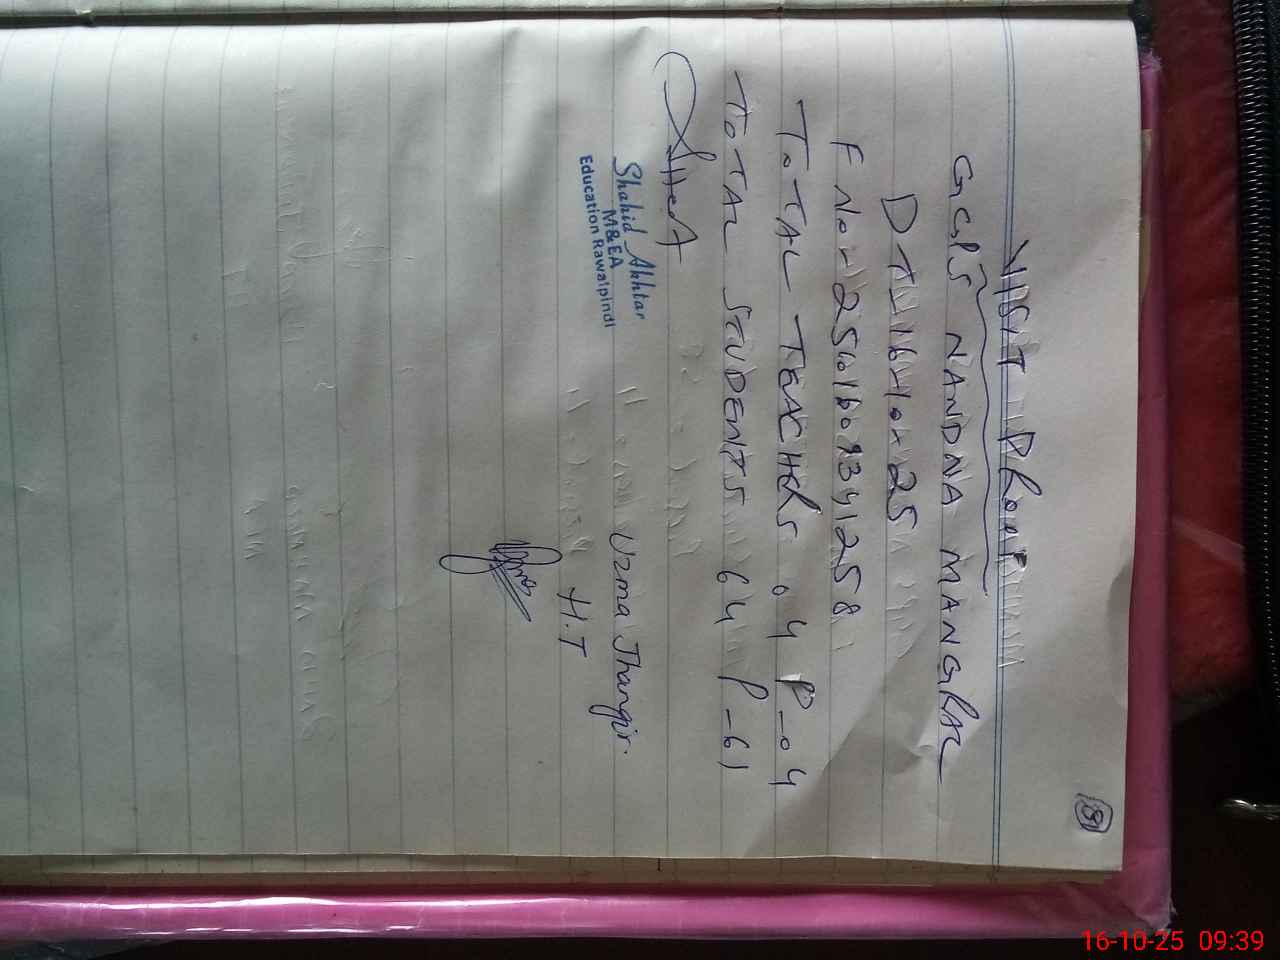 81
VISIT PROOF
GGPS NANDNA MANGRAL
DT 16-10-25
F No - 25101609341258
TOTAL TEACHERS 04 P-04
TOTAL STUDENTS 64 P-61
Shahid Akhtar
M&EA
Education Rawalpindi
Uzma Jhangir.
H.T
16-10-25 09:39